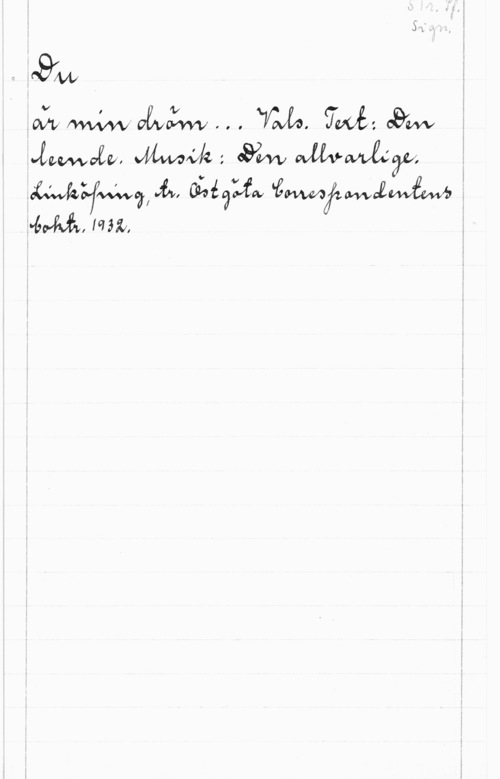 Str. Tf.
Sign.
Du
är min dröm ... Vals. Text: Den
leende. Musik: Den allvarlige.
Linköping, tr. Östgöta Correspondentens
boktr. 1932.